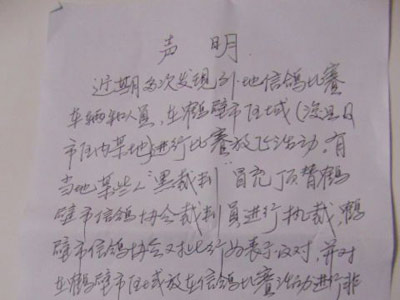 声 明
近期多次发现外地信鸽比赛
车辆和人员,在鹤壁市区域(浚县及
市区内某地)进行比赛放飞活动,有
当地某些人"黑裁判"冒充顶替鹤
壁市信鸽协会裁判员进行执裁,鹤
壁市信鸽协会对此行为表示反对,并对
在鹤壁市区域放在信鸽比赛活动进行非